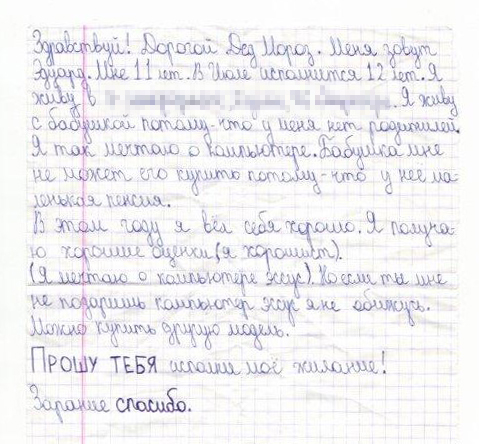 Здравствуй! Дорогой Дед Мороз. Меня зовут
Эдуард. Мне 11 лет. В Июле исполнится 12 лет. Я
живу в . Я живу
с бабушкой потому-что у меня нет родителей.
Я так мечтаю о компьютере. Бабушка мне
не может его купить потому-что у неё ма-
ленькая пенсия.
В этом году я вёл себя хорошо. Я получа-
ю хорошие оценки (я хорошист).
(Я мечтаю о компьютере эсус). Но если ты мне
не подаришь компьютер эсус я не обижусь.
Можно купить другую модель.
ПРОШУ ТЕБЯ исполни моё жилание!
Зарание спасибо.